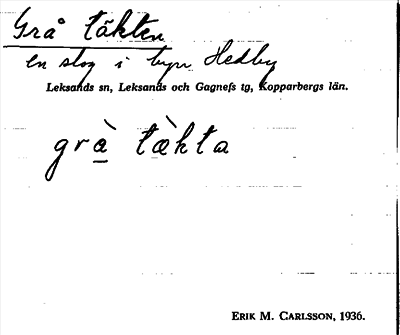 Grå täkten
en slog i byn Hedby
Leksands sn, Leksands och Gagnefs tg, Kopparbergs län.
grà tækta
ERIK M. CARLSSON, 1936.